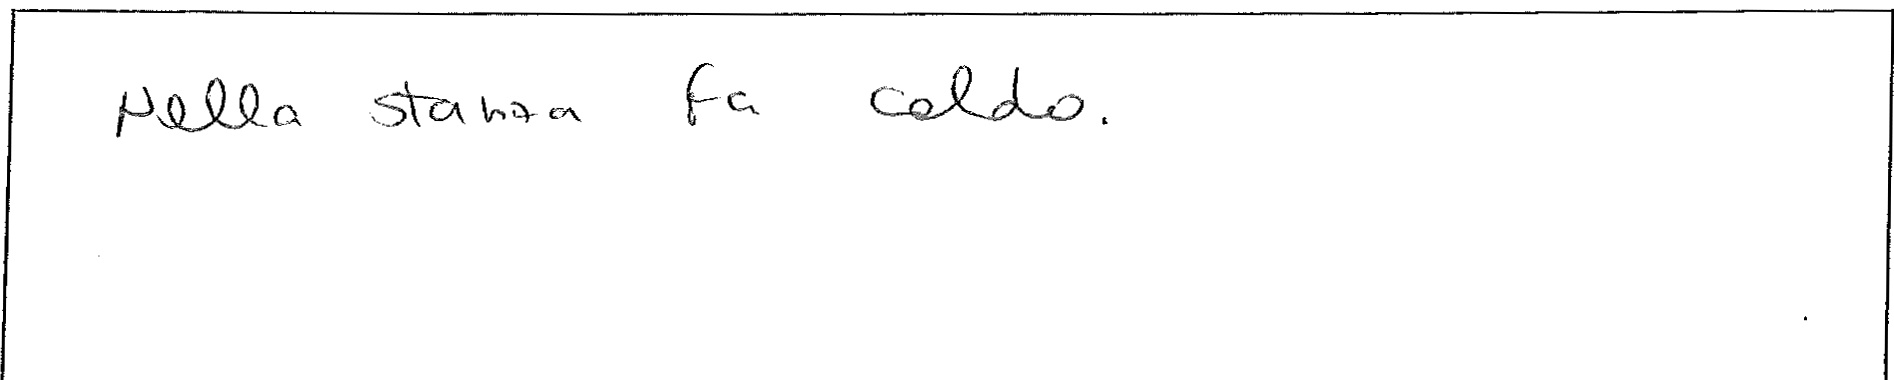 Nella stanza fa caldo.